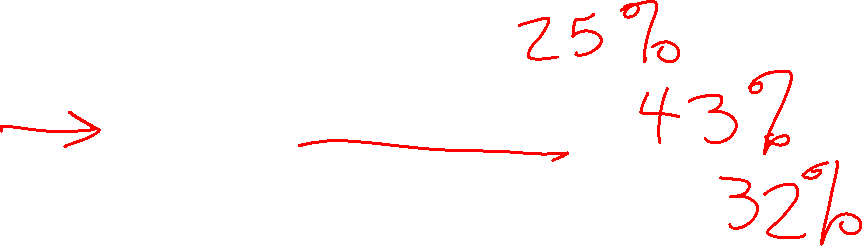 25%
43%
32%